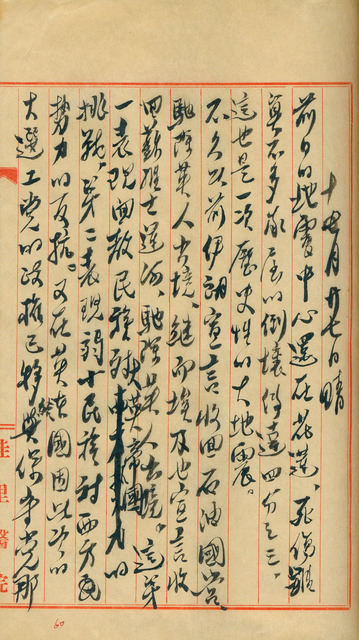 十月廿七日 晴
前日的地震中心還在花蓮、死傷雖
算不多、家屋的倒壞停達四分之三、
這也是一次歷史性的大地震。
不久以前伊朗宣言收回石油國營、
驅除英人出境、繼而埃及也宣言收
回蘇彝士運河、驅除英人出境。這第
一表現回教民族對英帝國的
挑戰、第二表現弱小民族對西方
勢力的反抗。又在英本國因此次的
大選工党的政權已轉英保守党那
佳里醫院
60